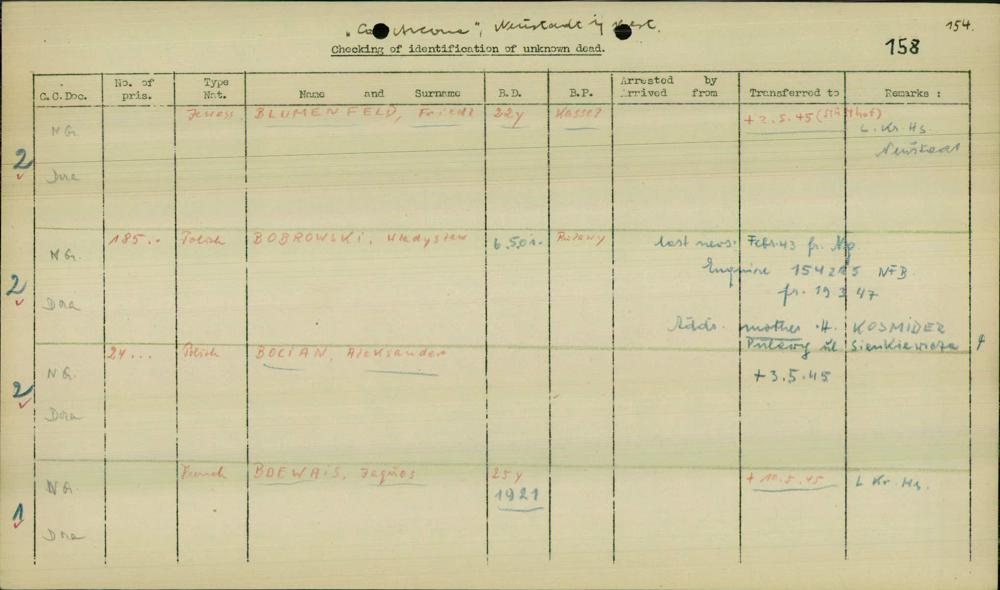 "Cap Arcona", Neustadt i/
154.
Checking of identification of unknown dead.
158
C.C.Doc. No. of pris. Type Nat. Name and Surname B.D. B.P. Arrested by Arrived from Transferred to Remarks :
2 N G. BLUMENFELD, Friedl 22y Kassel + 2.5.45 (Stutthof) L. Kr. Hs.
Neustadt
Dora
2 N G. 185.. Polish BOBROWSKI, Wladyslaw 6.5.01. Pulawy last news: Febr. 43 fr.
Enquire 154215 N+B.
Dora fr. 19 3 47
Addr. mother H. KOSMIDER
Pulawy ul. Sienkiewicza 4
2 N G. 24... Polish BOCIAN, Aleksander + 3.5.45
Dora
1 N G. French BOEWAIS, 25y + 10.5.45 L. Kr. Hs.
1921
Dora